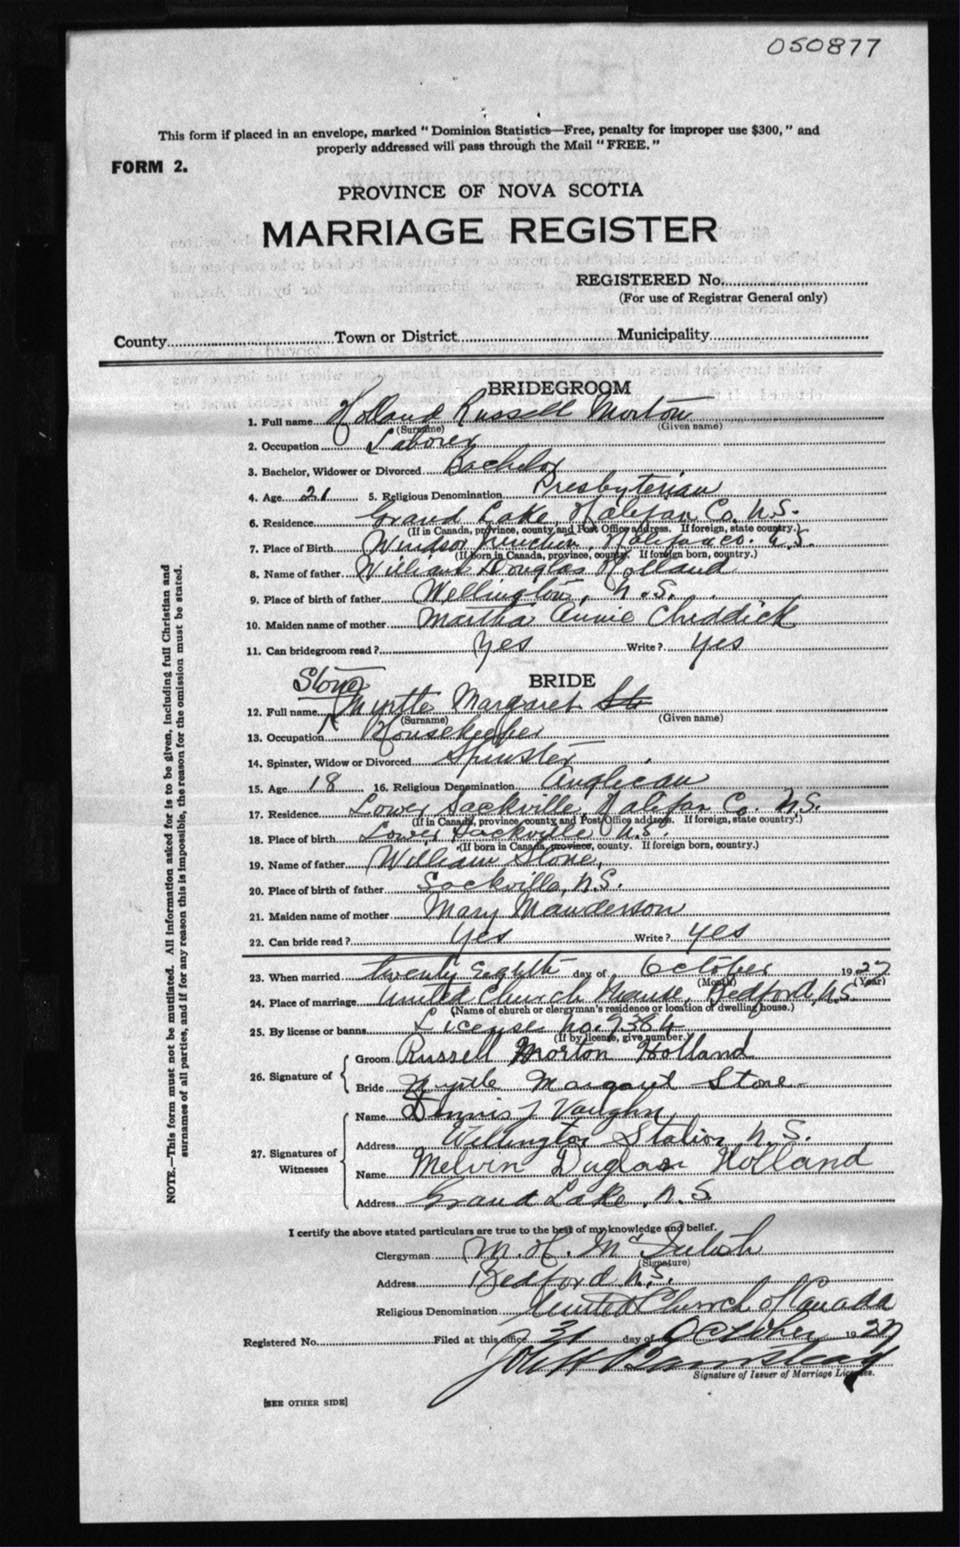 050877
This form if placed in an envelope, marked "Dominion Statistics—Free, penalty for improper use $300," and
properly addressed will pass through the Mail "FREE."
FORM 2.
PROVINCE OF NOVA SCOTIA
MARRIAGE REGISTER
REGISTERED No.
(For use of Registrar General only)
County Town or District Municipality
BRIDEGROOM
1. Full name Holland Russell Morton
(Surname) (Given name)
2. Occupation Laborer
3. Bachelor, Widower or Divorced Bachelor
4. Age 21 5. Religious Denomination Presbyterian
6. Residence Grand Lake, Halifax Co. N.S.
(If in Canada, province, county and Post Office address. If foreign, state country.)
7. Place of Birth Windsor Junction, Halifax Co. N.S.
(If born in Canada, province, county. If foreign born, country.)
8. Name of father William Douglas Holland
9. Place of birth of father Wellington, N.S.
10. Maiden name of mother Martha Annie Chiddick
11. Can bridegroom read? Yes Write? yes
BRIDE
Stone
12. Full name Myrtle Margaret Sto
(Surname) (Given name)
13. Occupation Housekeeper
14. Spinster, Widow or Divorced Spinster
15. Age 18 16. Religious Denomination Anglican
17. Residence Lower Sackville, Halifax Co. N.S.
(If in Canada, province, county and Post Office address. If foreign, state country.)
18. Place of birth Lower Sackville N.S.
(If born in Canada, province, county. If foreign born, country.)
19. Name of father William Stone,
20. Place of birth of father Sackville, N.S.
21. Maiden name of mother Mary Maunderson
22. Can bride read? Yes Write? yes
23. When married twenty eighth day of October 1927
(Month) (Year)
24. Place of marriage United Church Manse, Bedford, N.S.
(Name of church or clergyman's residence or location of dwelling house.)
25. By license or banns License no. 9384
(If by license, give number.)
26. Signature of Groom Russell Morton Holland
Bride Myrtle Margaret Stone
27. Signatures of Witnesses
Name Dennis J Vaughn,
Address Wellington Station N.S.
Name Melvin Duglas Holland
Address Grand Lake, N.S
I certify the above stated particulars are true to the best of my knowledge and belief.
Clergyman M. H. McIntosh
(Signature)
Address Bedford N.S.
Religious Denomination United Church of Canada
Registered No. Filed at this office 31 day of October 1927
Signature of Issuer of Marriage Licenses.
[SEE OTHER SIDE]
NOTE.—This form must not be mutilated. All information asked for is to be given, including full Christian and
surnames of all parties, and if for any reason this is impossible, the reason for the omission must be stated.